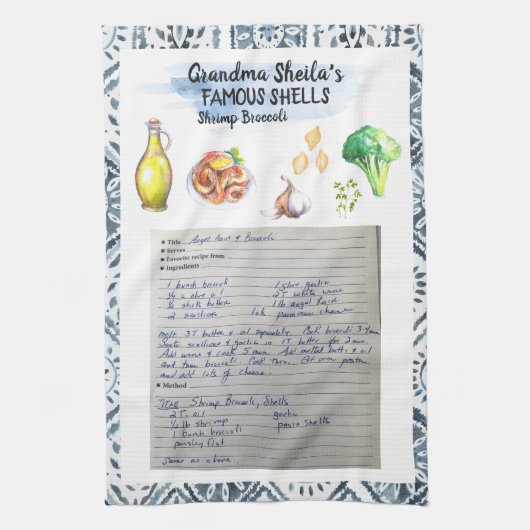 Grandma Sheila's
FAMOUS SHELLS
Shrimp Broccoli
Title Angel Hair & Broccoli
Serves
Favorite recipe from
Ingredients
1 bunch broccoli 1 clove garlic
1/4 c olive oil 2T white wine
1/2 stick butter 1 lb angel hair
2 scallions parmesan cheese
melt 3T butter & oil separately. Cook broccoli 3-4 min.
Saute scallions & garlic in 1T butter for 2 min.
Add wine & cook 5 min. Add melted butter & oil
and toss broccoli. Cook thru. over pasta
and add lots of cheese.
Method
Title Shrimp Broccoli, Shells
2T. oil garlic
1/4 lb shrimp pasta shells
1 bunch broccoli
parsley flat
Same as above.